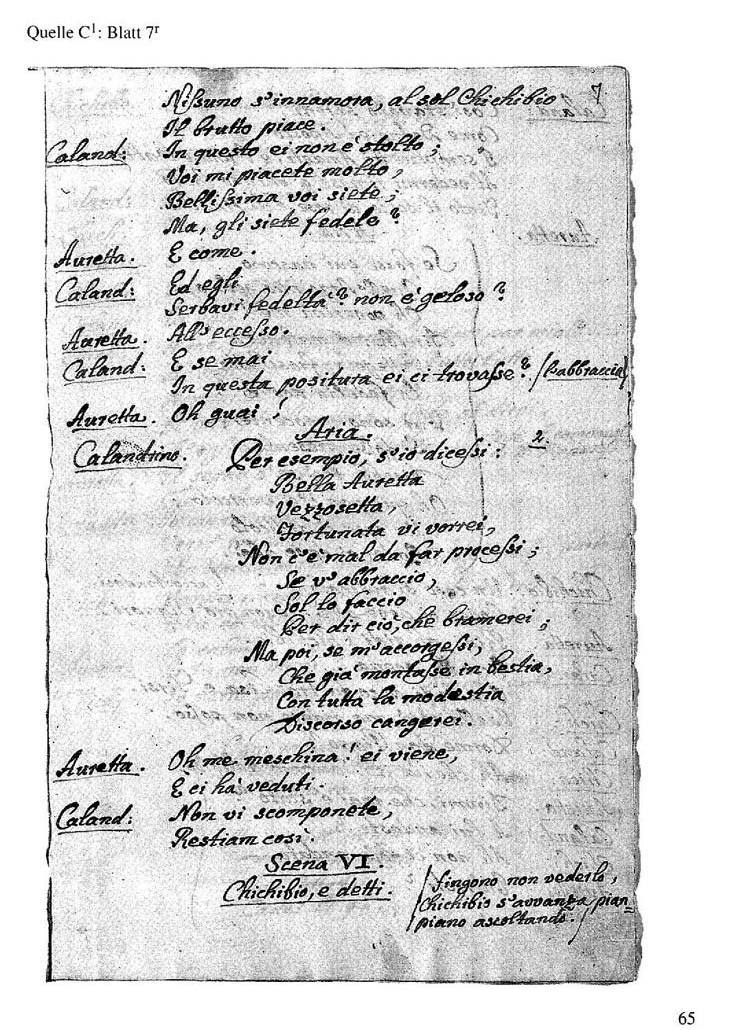 Quelle C¹: Blatt 7ʳ
7
Nißuno s'innamora, al sol Chichibio
Il brutto piace.
Caland: In questo ei non è stolto;
Voi mi piacete molto,
Bellißima voi siete;
Ma, gli siete fedele?
Auretta. E come.
Caland: Ed egli
Serbavi fedeltà? non è geloso?
Auretta. All'eccesso.
Caland: E se mai
In questa positura ei ci trovaße? (l'abbraccia)
Auretta. Oh guai!
Aria.
Calandrino. Per esempio, s'io diceßi: 2.
Bella Auretta
Vezzosetta,
Fortunata vi vorrei,
Non c'è mal da far proceßi;
Se v'abbraccio,
Sol lo faccio
Per dir ciò, chè bramerei;
Ma poi, se m'accorgeßi,
Che già montaße in bestia,
Con tutta la modestia
Discorso cangerei.
Auretta. Oh me meschina! ei viene,
E ci hà veduti.
Caland: Non vi scomponete,
Restiam così.
Scena VI.
Chichibio, e detti.
(fingono non vederlo,
Chichibio s'avvanza pian=
piano ascoltando.)
65